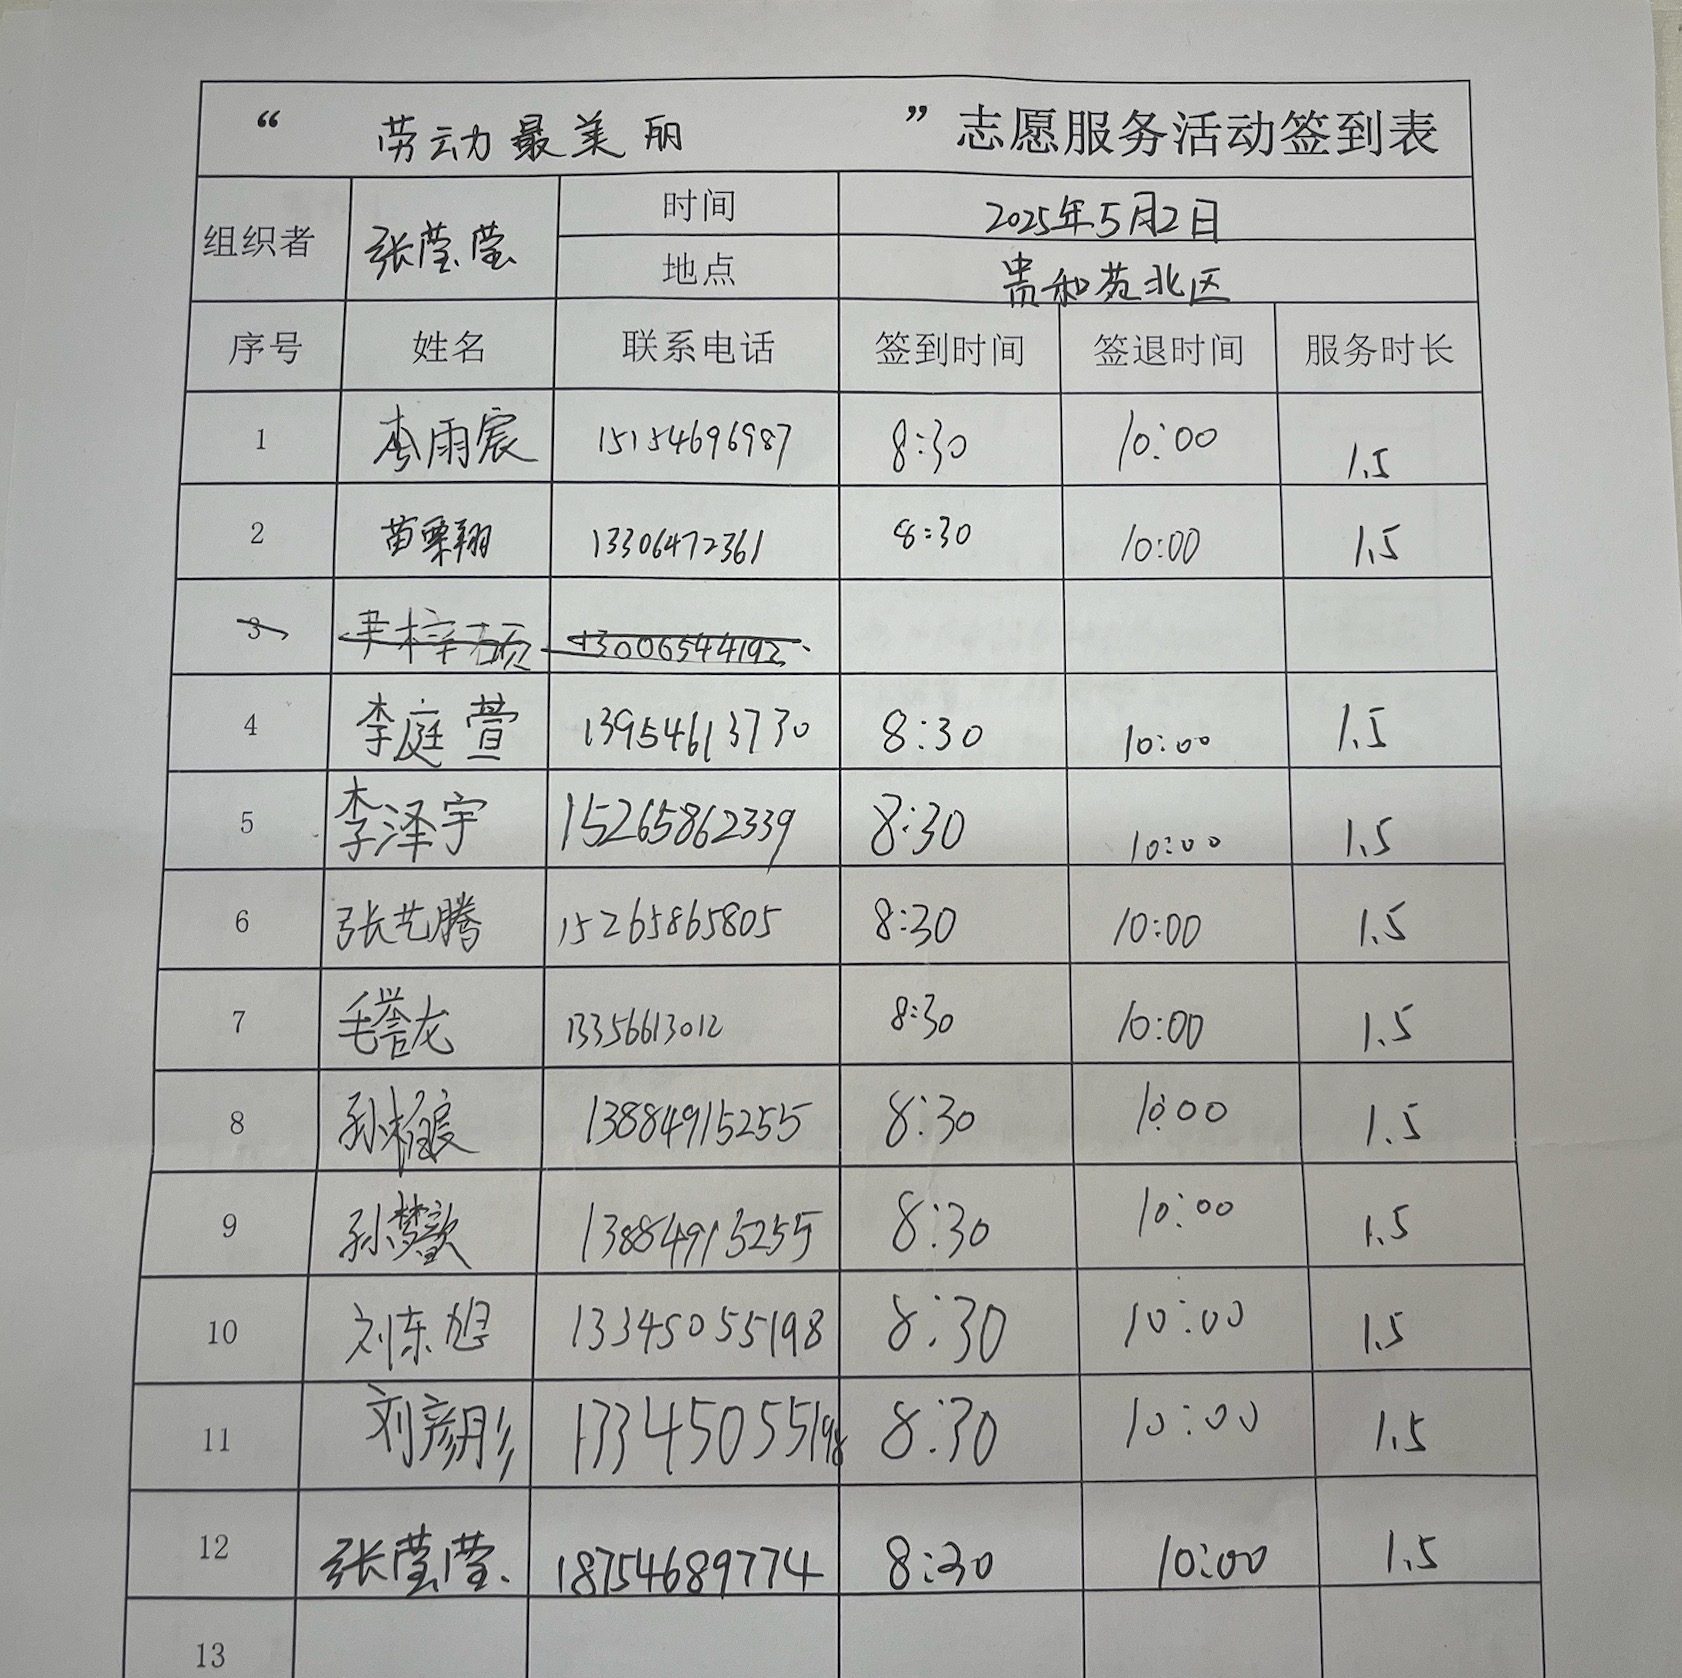 “ 劳动最美丽 ”志愿服务活动签到表
组织者 张莹莹 时间 2025年5月2日
地点 贵和苑北区
序号 姓名 联系电话 签到时间 签退时间 服务时长
1 李雨宸 15154696987 8:30 10:00 1.5
2 苗栗翔 13306472361 8:30 10:00 1.5
3 尹梓硕 13006544192
4 李庭萱 13954613730 8:30 10:00 1.5
5 李泽宇 15265862339 8:30 10:00 1.5
6 张艺腾 15265865805 8:30 10:00 1.5
7 毛誉龙 13356613012 8:30 10:00 1.5
8 13884915255 8:30 10:00 1.5
9 孙梦歆 13884915255 8:30 10:00 1.5
10 刘东旭 13345055198 8:30 10:00 1.5
11 刘彦彤 13345055198 8:30 10:00 1.5
12 张莹莹. 18754689774 8:30 10:00 1.5
13